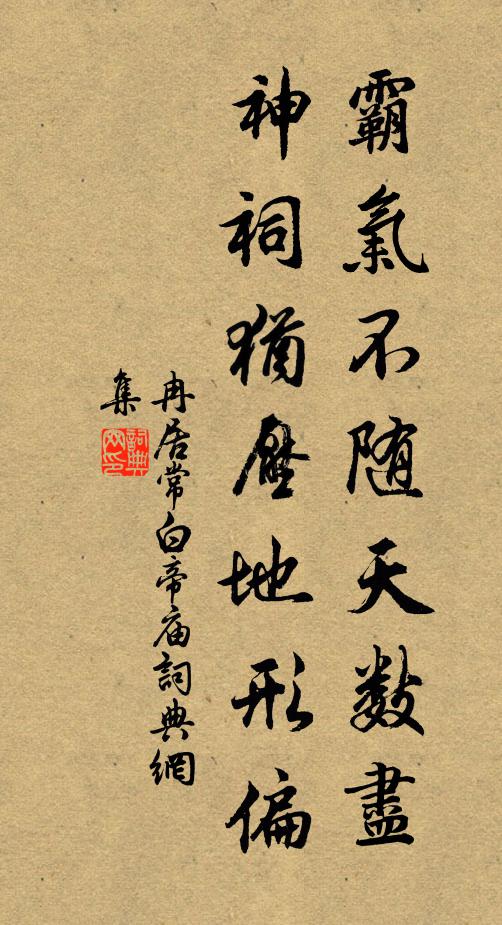 霸氣不随天数盡
神祠猶壓地形偏
冉居常白帝庙詞典網
集
詞典
网印